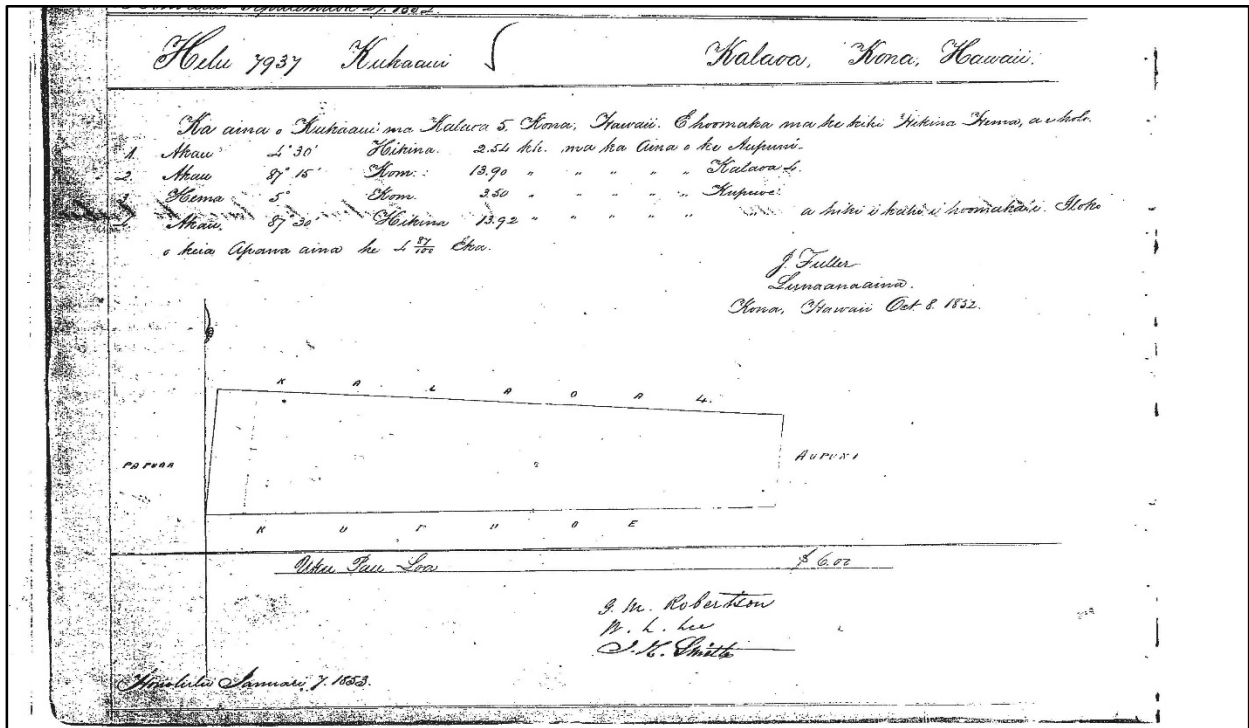 Helu 7937 Kuhaaui Kalaoa, Kona, Hawaii.
Ka aina o Kuhaaui ma Kalaoa 5, Kona, Hawaii. E hoomaka ma ke kihi Hikina Hema, a e holo.
1. Akau 4° 30' Hikina. 2.54 kh. ma ka Aina o ke Aupuni.
2. Akau 87° 15' Kom.: 13.90 " " " " " Kalaoa 4.
Hema 5° Kom. 3.50 " " " " "
Akau. 87° 30' Hikina 13.92 " " " " " a hiki i kahi i hoomaka'i. Iloko
o keia Apana aina he 4 87/100 Eka.
J. Fuller
Lunaanaaina.
Kona, Hawaii Oct. 8. 1852.
K A L A O A 4.
PAPUAA
AUPUNI
K U P U O E
Uku Pau Loa $ 6.00
G. M. Robertson
W. L. Lee
J. H. Smith
Honolulu Januari 7. 1853.